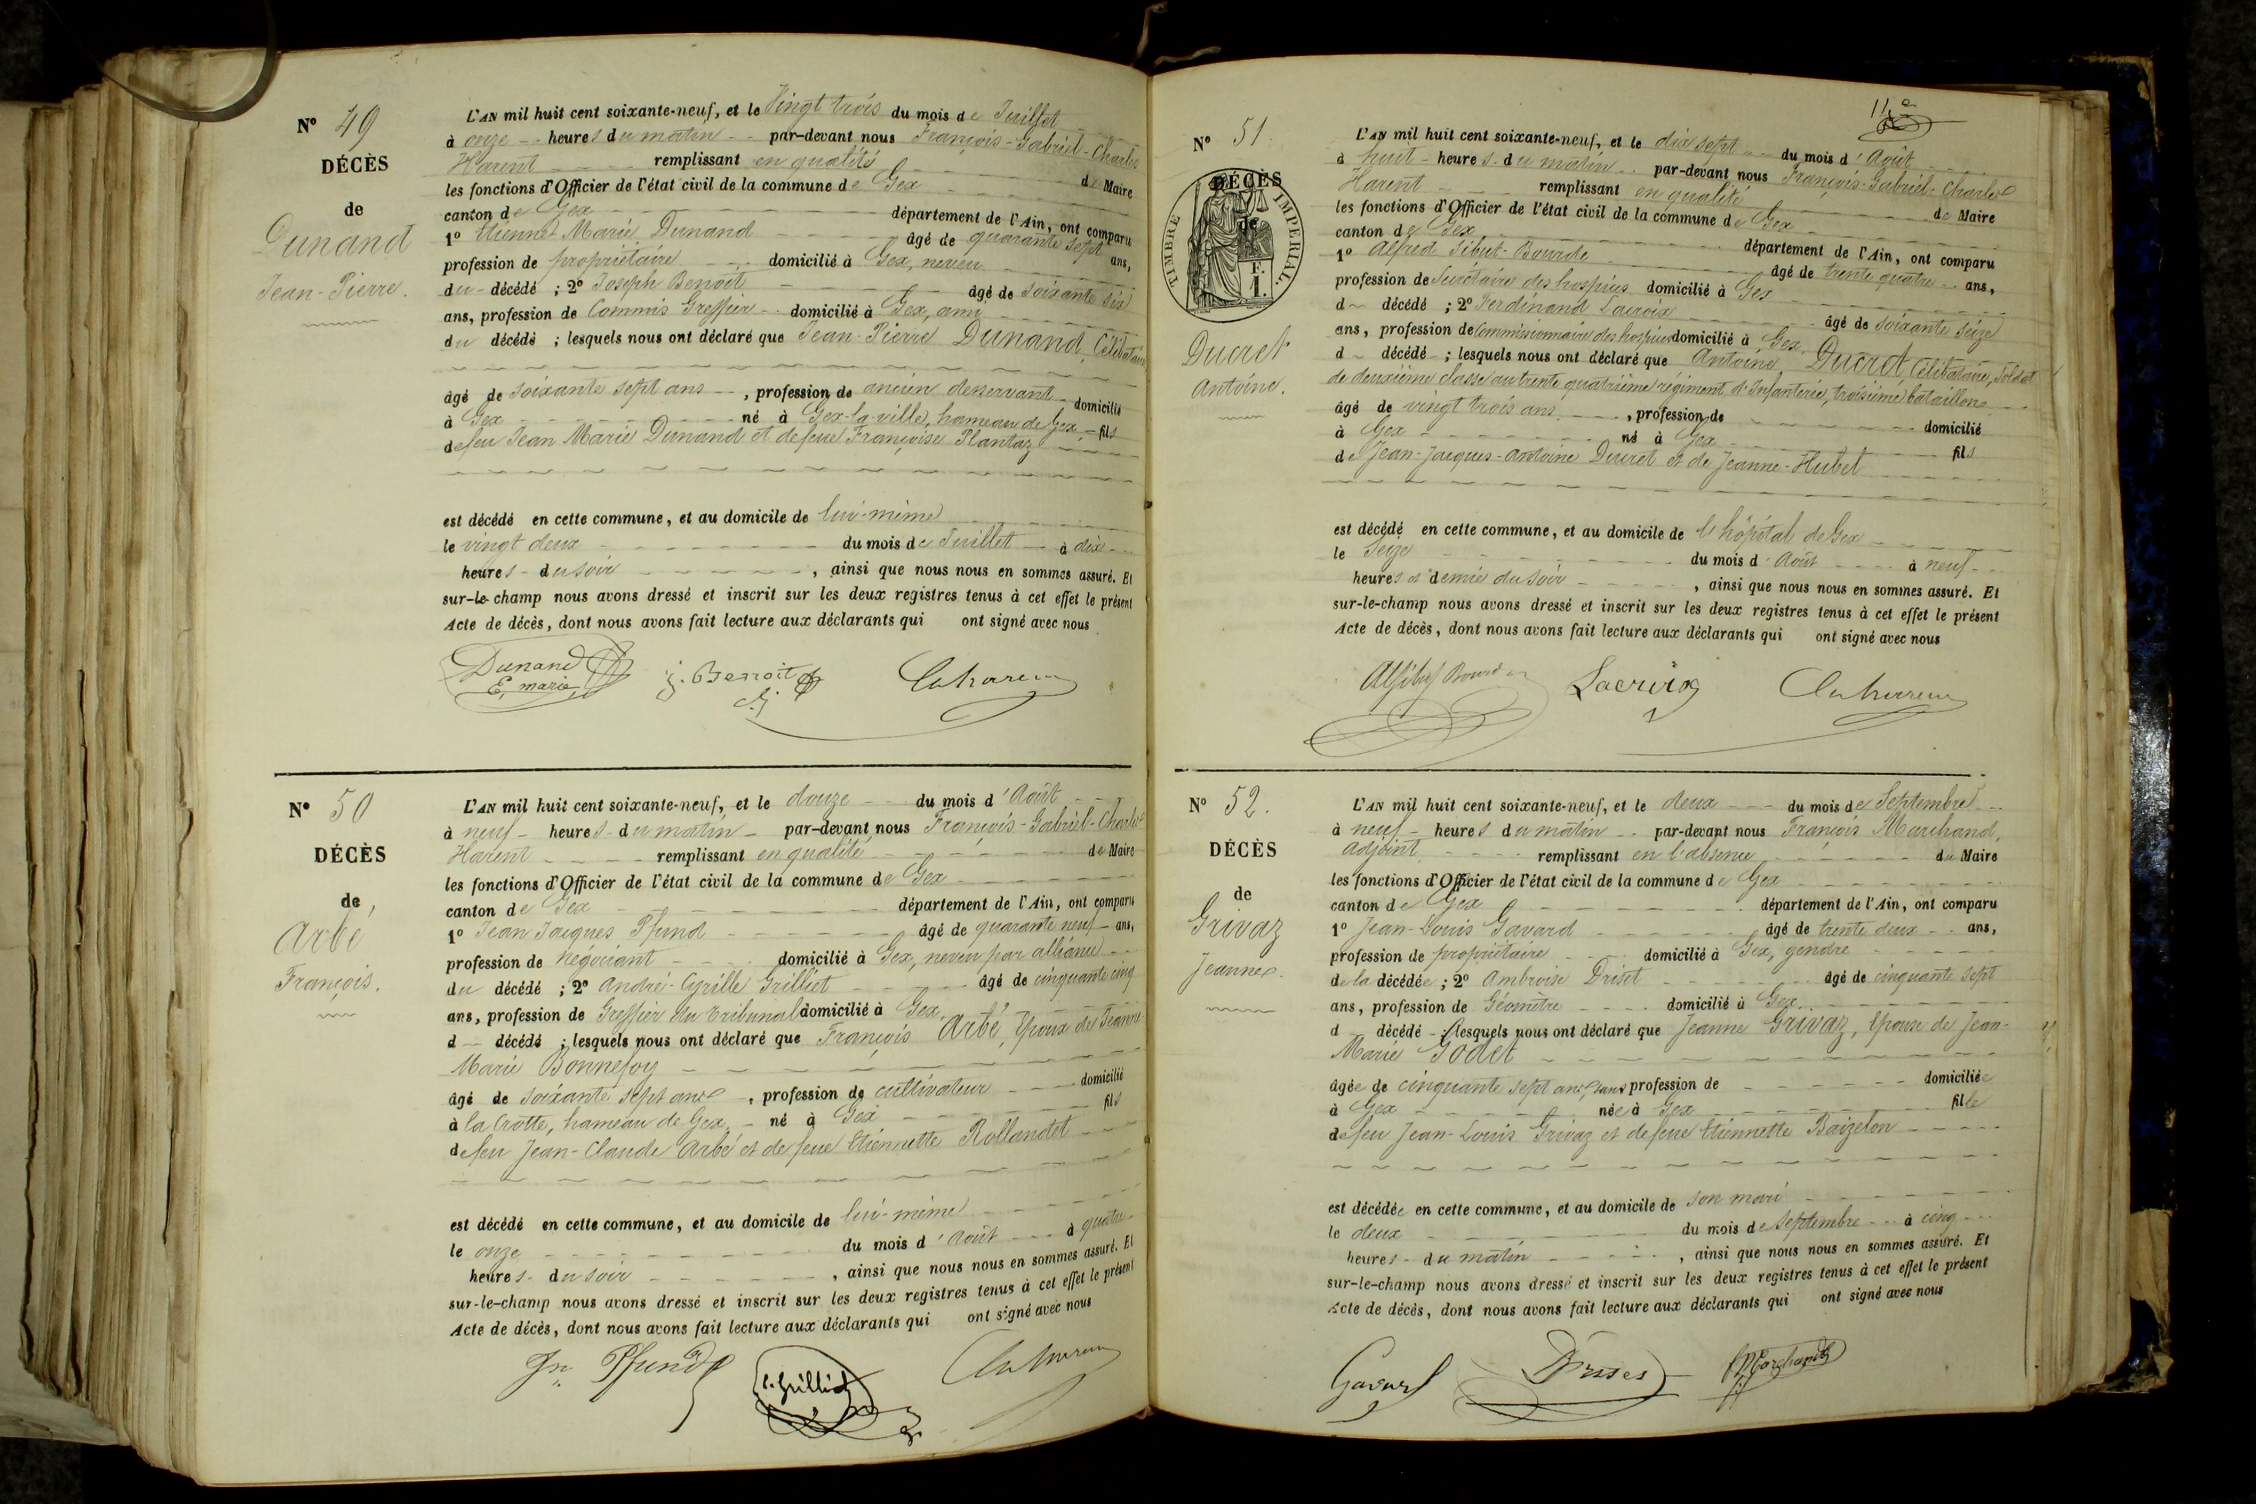 N° 49
DÉCÈS
de
Dunand
Jean-Pierre.
L'AN mil huit cent soixante-neuf, et le Vingt trois du mois de Juillet
à onze heures du matin par-devant nous François-Gabriel-Charles
Harent remplissant en qualité de Maire
les fonctions d'Officier de l'état civil de la commune de Gex
canton de Gex département de l'Ain, ont comparu
1° Etienne Marie Dunand âgé de quarante sept ans,
profession de propriétaire domicilié à Gex, neveu
du décédé ; 2° Joseph Benoit âgé de soixante six
ans, profession de Commis Greffier domicilié à Gex, ami
du décédé ; lesquels nous ont déclaré que Jean-Pierre Dunand, Célibataire
âgé de soixante sept ans, profession de ancien desservant domicilié
à Gex né à Gex-la-ville, hameau de Gex, fils
de feu Jean Marie Dunand et de feue Françoise Plantaz
est décédé en cette commune, et au domicile de lui-même
le vingt deux du mois de Juillet à dix
heures du soir, ainsi que nous nous en sommes assuré. Et
sur-le-champ nous avons dressé et inscrit sur les deux registres tenus à cet effet le présent
Acte de décès, dont nous avons fait lecture aux déclarants qui ont signé avec nous
Dunand
E, marie
j. Benoit
N° 50
DÉCÈS
de
Arbé
François.
L'AN mil huit cent soixante-neuf, et le douze du mois d'Août
à neuf heures du matin par-devant nous François-Gabriel-Charles
Harent remplissant en qualité de Maire
les fonctions d'Officier de l'état civil de la commune de Gex
canton de Gex département de l'Ain, ont comparu
1° Jean Jacques Pfund âgé de quarante neuf ans,
profession de négociant domicilié à Gex, neveu par alliance
du décédé ; 2° André-Cyrille Grilliet âgé de cinquante cinq
ans, profession de Greffier du tribunal domicilié à Gex,
d décédé ; lesquels nous ont déclaré que François Arbé, Epoux de Jeanne
Marie Bonnefoy
âgé de soixante sept ans, profession de cultivateur domicilié
à la Crotte, hameau de Gex, né à Gex fils
de feu Jean-Claude Arbé et de feue Etiennette Rollandet
est décédé en cette commune, et au domicile de lui-même
le onze du mois d'Août à quatre
heures du soir, ainsi que nous nous en sommes assuré. Et
sur-le-champ nous avons dressé et inscrit sur les deux registres tenus à cet effet le présent
Acte de décès, dont nous avons fait lecture aux déclarants qui ont signé avec nous
Jn Pfund
C. Grilliet
N° 51.
DÉCÈS
de
TIMBRE IMPÉRIAL.
Ducret
Antoine.
L'AN mil huit cent soixante-neuf, et le dix sept du mois d'Août
à huit heures du matin par-devant nous François-Gabriel-Charles
Harent remplissant en qualité de Maire
les fonctions d'Officier de l'état civil de la commune de Gex
canton de Gex département de l'Ain, ont comparu
1° Alfred Gibut-Bourde âgé de trente quatre ans,
profession de Secrétaire des hospices domicilié à Gex
d décédé ; 2° Ferdinand Lacroix âgé de soixante seize
ans, profession de Commissionnaire des hospices domicilié à Gex
d décédé ; lesquels nous ont déclaré que Antoine Ducret Célibataire, Soldat
de deuxième classe au trente quatrième régiment d'Infanterie, troisième bataillon
âgé de vingt trois ans, profession de domicilié
à Gex né à Gex fils
de Jean-Jacques-Antoine Ducret et de Jeanne-Hubet
est décédé en cette commune, et au domicile de l'hôpital de Gex
le Seize du mois d'Août à neuf
heures et demie du soir, ainsi que nous nous en sommes assuré. Et
sur-le-champ nous avons dressé et inscrit sur les deux registres tenus à cet effet le présent
Acte de décès, dont nous avons fait lecture aux déclarants qui ont signé avec nous
Lacroix
N° 52.
DÉCÈS
de
Grivaz
Jeanne.
L'AN mil huit cent soixante-neuf, et le deux du mois de Septembre
à neuf heures du matin par-devant nous François Marchand,
adjoint remplissant en l'absence du Maire
les fonctions d'Officier de l'état civil de la commune de Gex
canton de Gex département de l'Ain, ont comparu
1° Jean-Louis Gavard âgé de trente deux ans,
profession de propriétaire domicilié à Gex, gendre
de la décédée ; 2° Ambroise Driset âgé de cinquante sept
ans, profession de Géomètre domicilié à Gex
d décédé ; lesquels nous ont déclaré que Jeanne Grivaz, Epouse de Jean-
Marie Godet
âgée de cinquante sept ans, sans profession de domiciliée
à Gex née à Gex fille
de feu Jean-Louis Grivaz et de feue Etiennette Baizelon
est décédée en cette commune, et au domicile de son mari
le deux du mois de Septembre à cinq
heures du matin, ainsi que nous nous en sommes assuré. Et
sur-le-champ nous avons dressé et inscrit sur les deux registres tenus à cet effet le présent
Acte de décès, dont nous avons fait lecture aux déclarants qui ont signé avec nous
Gavard
f Marchand